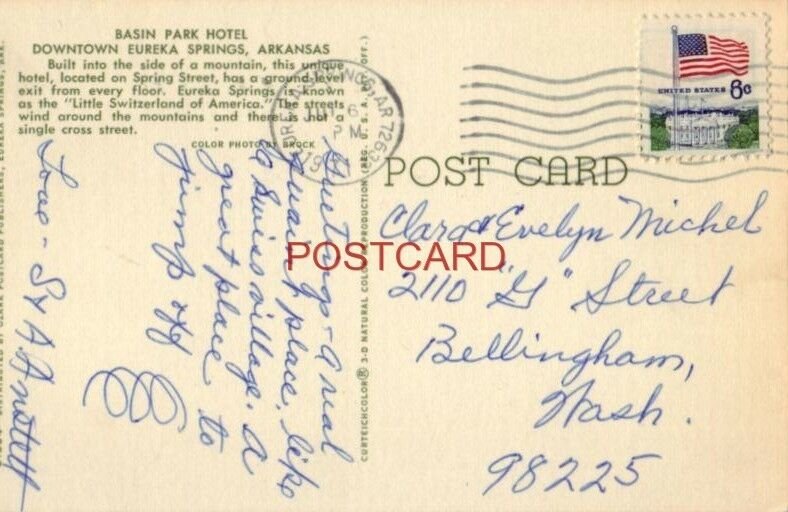 BASIN PARK HOTEL
DOWNTOWN EUREKA SPRINGS, ARKANSAS
Built into the side of a mountain, this unique
hotel, located on Spring Street, has a ground level
exit from every floor. Eureka Springs is known
as the "Little Switzerland of America." The streets
wind around the mountains and there is not a
single cross street.
COLOR PHOTO BY BROCK
UNITED STATES 8c
PM
POST CARD
Clara & Evelyn Michel
2110 "G" Street
Bellingham,
Wash.
98225
POSTCARD
Greetings - a real
quaint place, like
a Swiss village. A
great place to
jump off
Love -
CURTEICHCOLOR® 3-D NATURAL COLOR REPRODUCTION (REG. U.S.A. PAT. OFF.)
DISTRIBUTED BY CLARK POSTCARD PUBLISHERS, EUREKA SPRINGS, ARK.